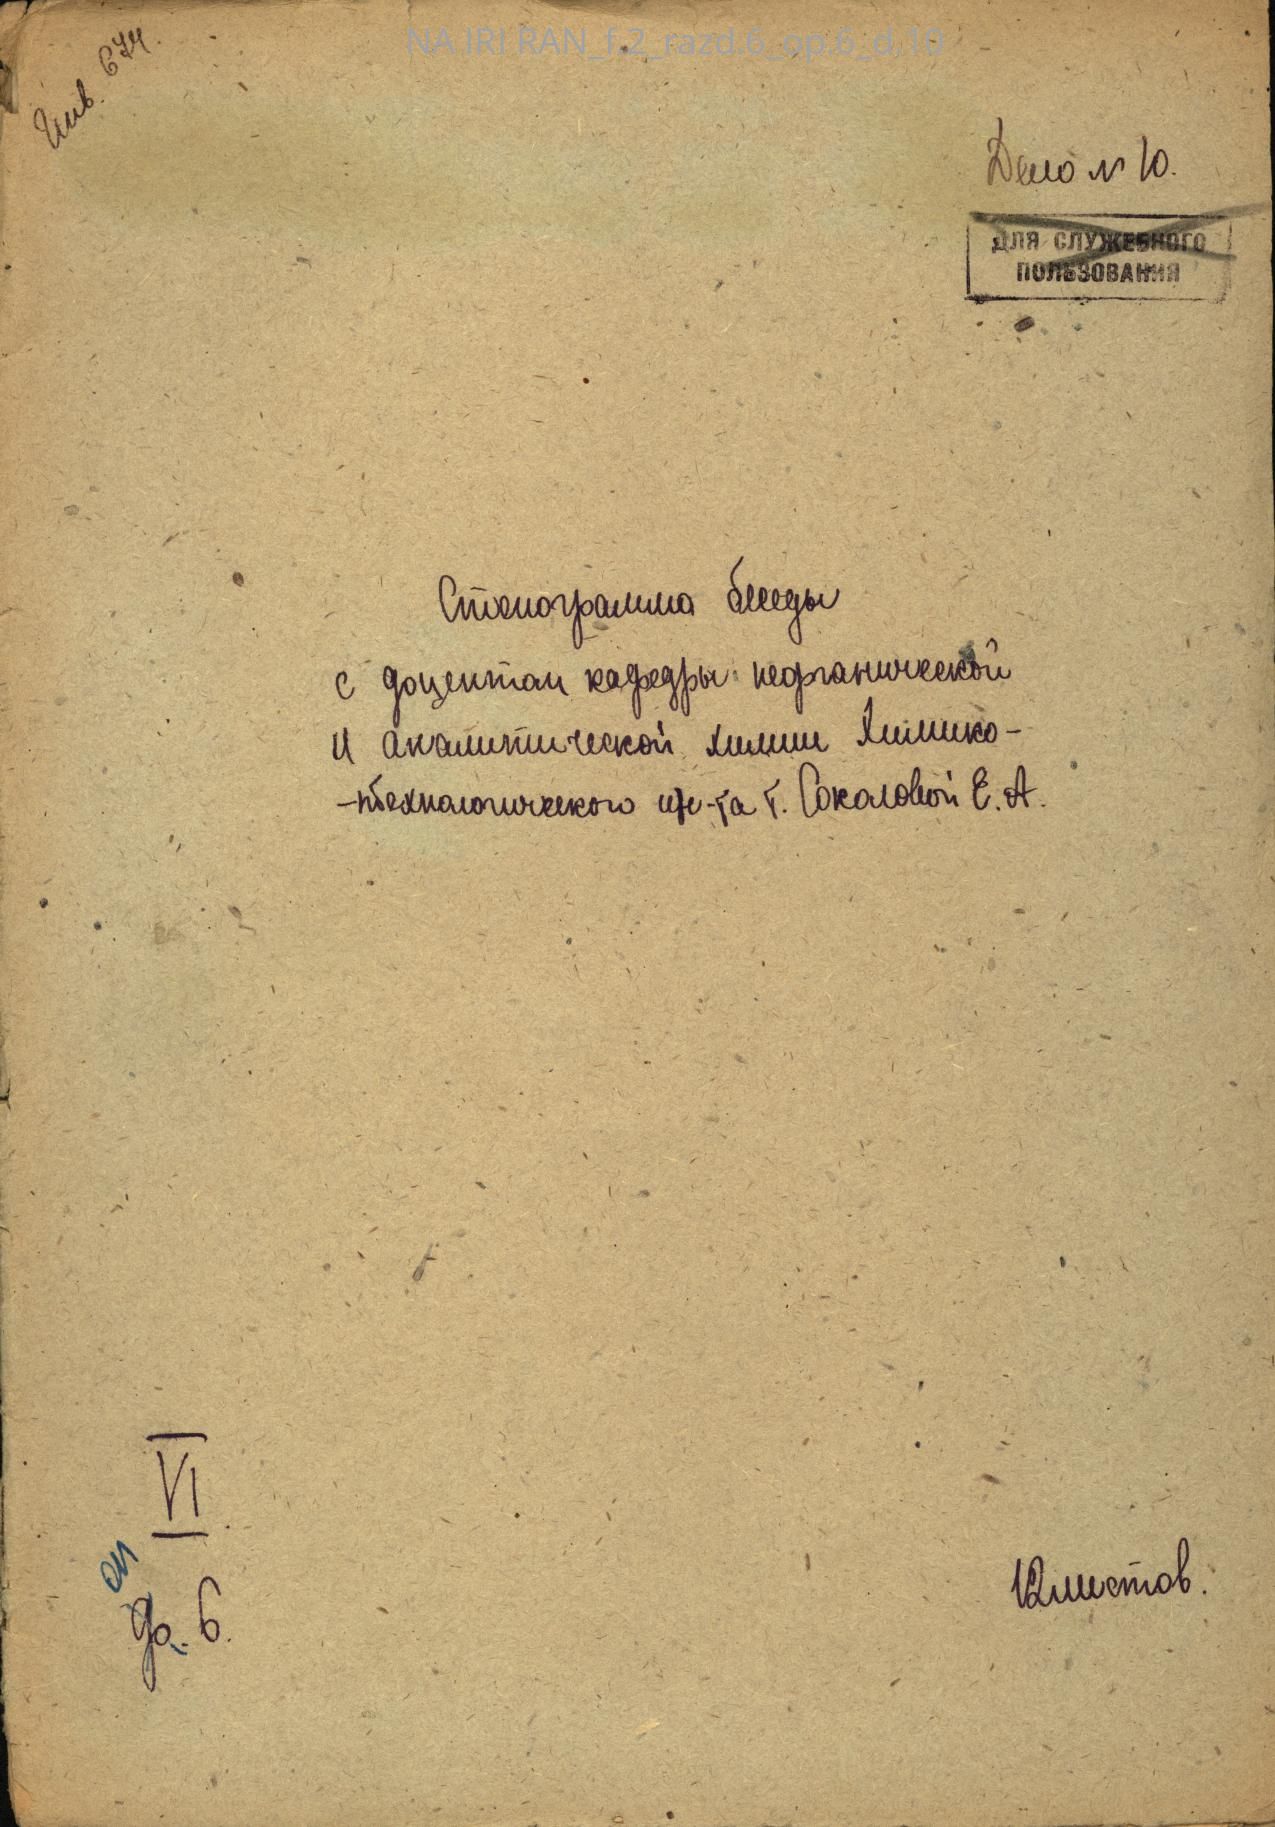 NA IRI RAN_f.2_razd.6_op.6_d.10
Инв. 674.
Дело № 10.
ДЛЯ СЛУЖЕБНОГО
ПОЛЬЗОВАНИЯ
Стенограмма беседы
с доцентом кафедры неорганической
и аналитической химии Химико-
-технологического ин-та т. Соколовой Е. А.
VI
оп
6.
12 листов.